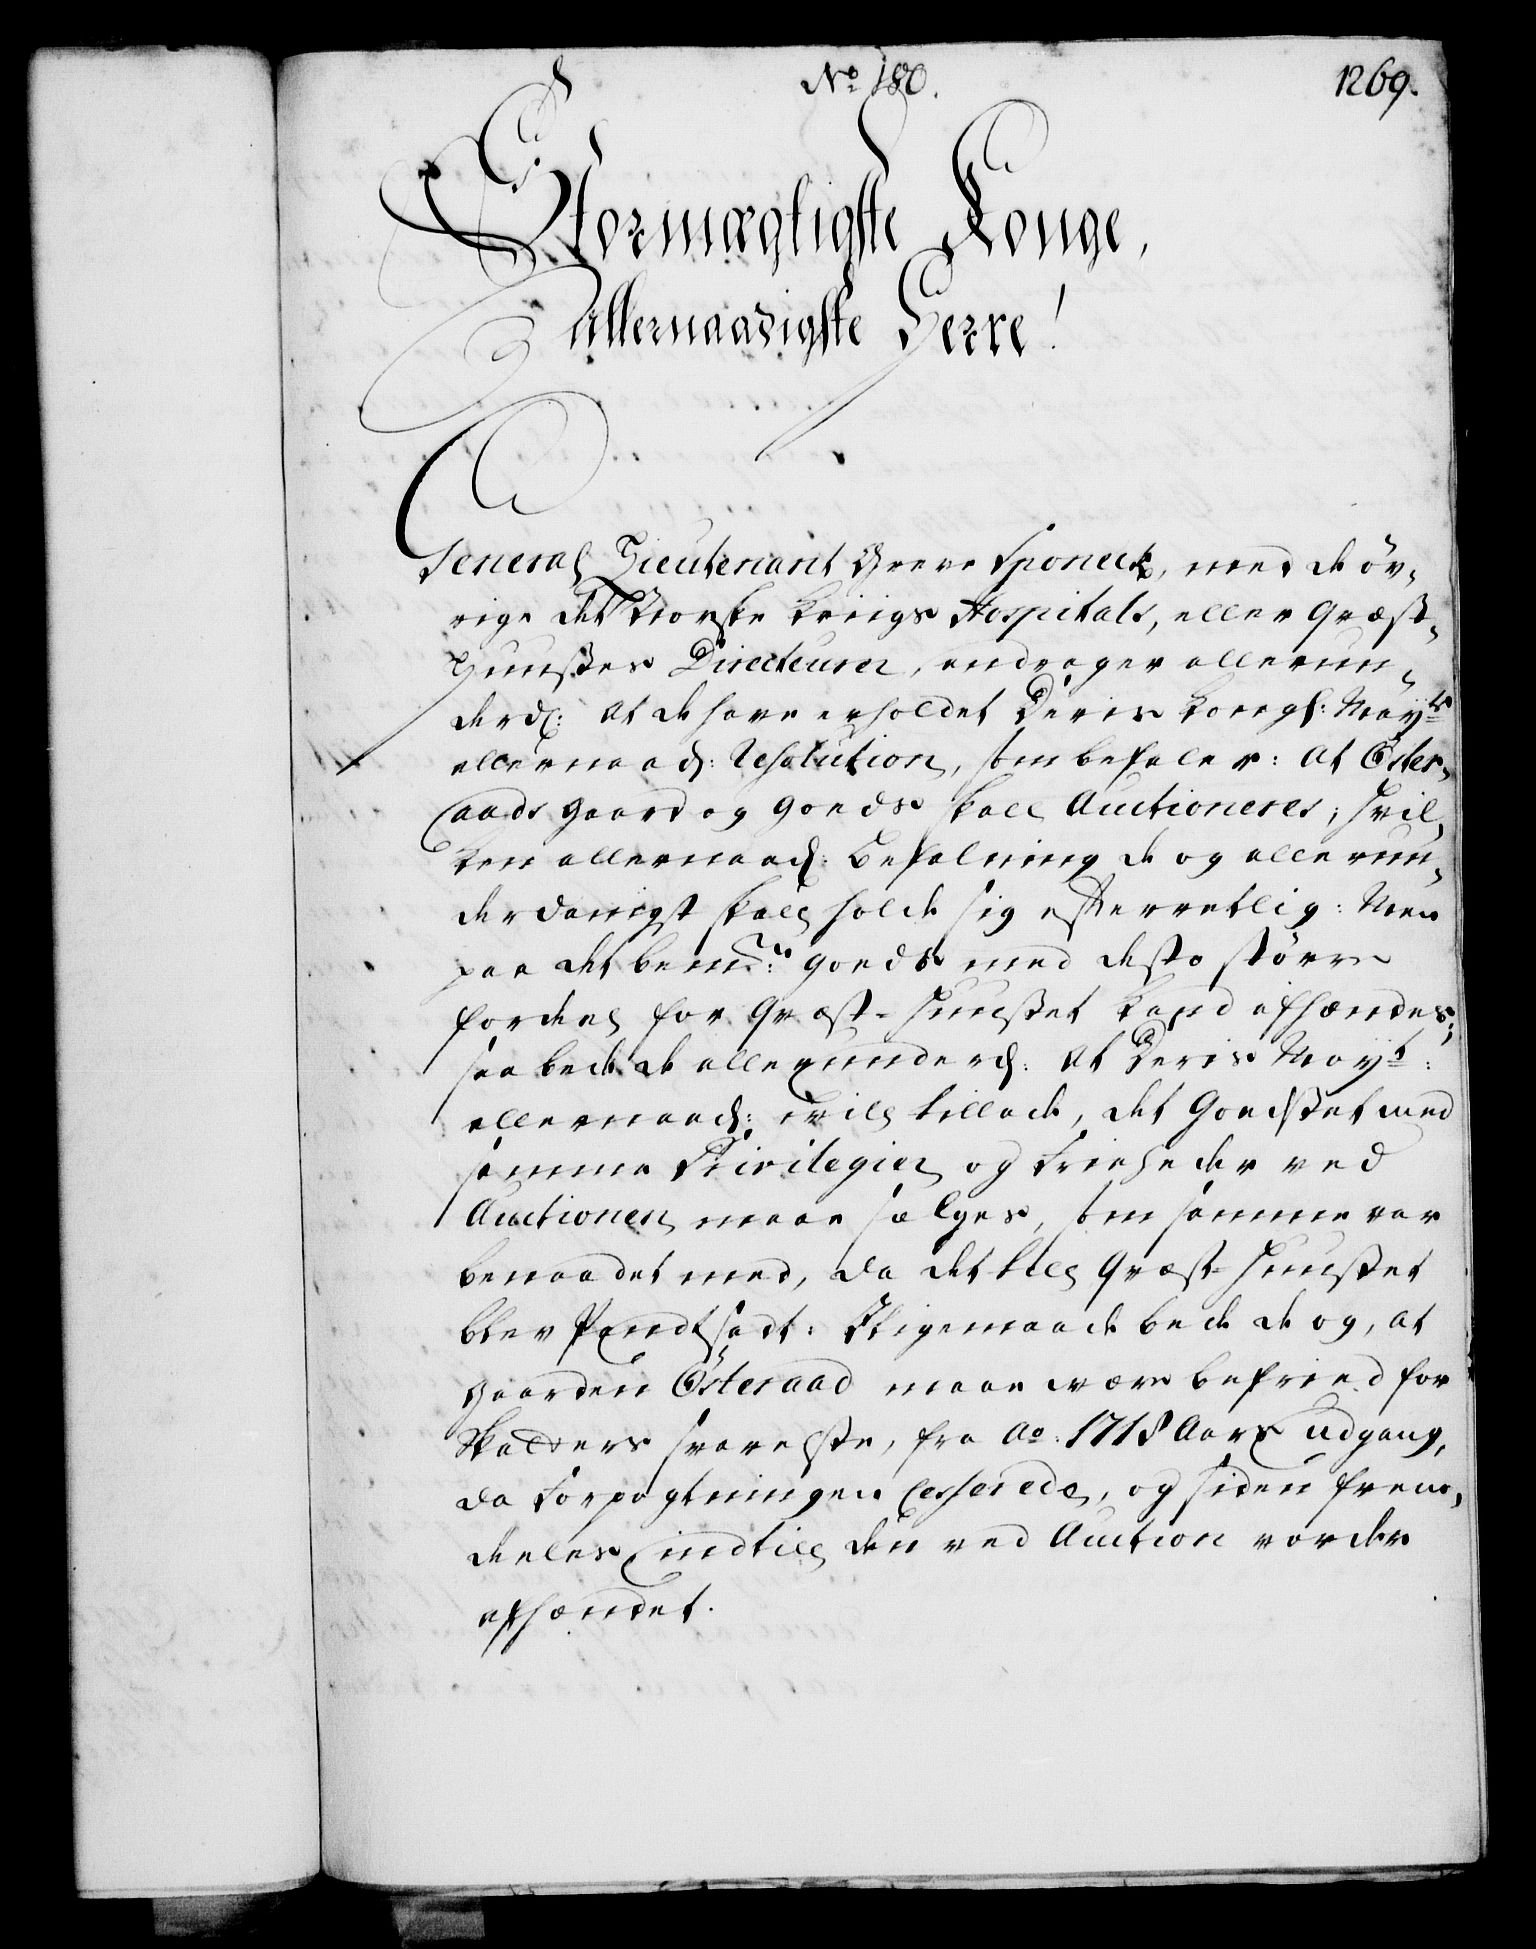 No 180.
1269.
Stormægtigste Konge,
Allernaadigste Herre!
General Lieutenant Greve Sponeck, med de öv-
rige det Norske Kriigs Hospitals, eller Qvæst-
Huuses Directeurer, andrager allerun-
derd: at de have erholdet Deris Kongl: Mayts
allernaad: Resolution, som befaler: at Öster-
aads gaard og goeds skall Auctioneres; hvil-
ken allernaad: befalning de og allerun-
derdanigst skall holde sig efterretlig: Men
paa det bemte: goeds med desto större
fordeel for Qvæst-Huuset kand afhændes;
saa bede de allerunderd: at Deris Mayt:
allernaad: vill tillade, det Goedset med
samme Privilegier og Friheder ved
Auctionen maae sælges, som samme var
benaadet med, da det till Qvæst-Huuset
blev Pendtsadt: Ligemaade bede de og, at
gaarden Österaad maae være befried for
Skatters svarelse, fra Ao: 1718 Aars udgang,
da Forpagtningen Cesserede, og siden frem-
deeles indtill den ved Auction vorder
afhændet.